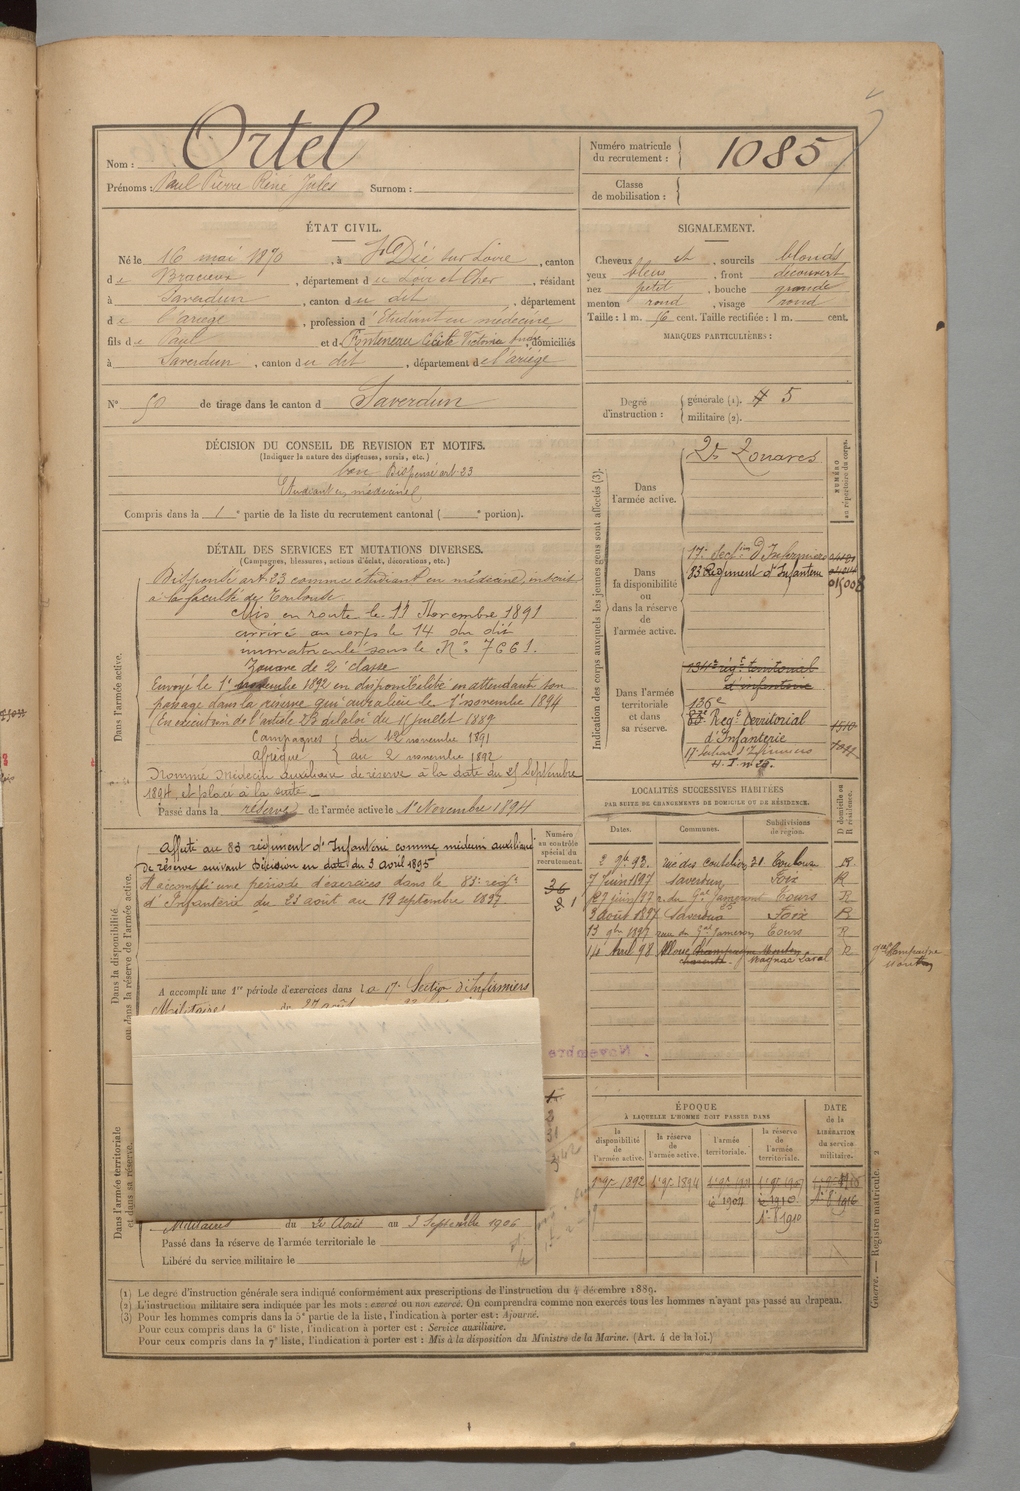 Nom : Ortel
Prénoms : Paul Pierre René Jules Surnom :
Numéro matricule du recrutement : 1085
Classe de mobilisation :
ÉTAT CIVIL.
Né le 16 mai 1870, à St Dié sur Loire, canton
de Bracieux, département du Loir et Cher, résidant
à Saverdun, canton du dit, département
de l'ariège, profession d'Etudiant en médecine
fils de Paul et de Cécile Victoria, domiciliés
à Saverdun, canton du dit, département de l'ariège
N° 50 de tirage dans le canton d Saverdun
SIGNALEMENT.
Cheveux et, sourcils blonds
yeux bleus, front découvert
nez petit, bouche grande
menton rond, visage rond
Taille : 1 m. 76 cent. Taille rectifiée : 1 m. cent.
MARQUES PARTICULIÈRES :
Degré d'instruction : générale (1). 5
militaire (2).
DÉCISION DU CONSEIL DE REVISION ET MOTIFS.
(Indiquer la nature des dispenses, sursis, etc.)
bon Dispensé art. 23
Etudiant en médecine
Compris dans la 1e partie de la liste du recrutement cantonal ( e portion).
DÉTAIL DES SERVICES ET MUTATIONS DIVERSES.
(Campagnes, blessures, actions d'éclat, décorations, etc.)
Dans l'armée active.
Dispensé art. 23 comme étudiant en médecine inscrit
à la faculté de Toulouse.
Mis en route le 11 Novembre 1891
arrivé au corps le 14 du dit
immatriculé sous le N° 7661.
Zouave de 2e classe
Envoyé le 1er novembre 1892 en disponibilité en attendant son
passage dans la réserve qui aura lieu le 1er novembre 1894
(En exécution de l'article 23 de la loi du 15 juillet 1889
Campagnes du 12 novembre 1891
Afrique au 2 novembre 1892
Nommé Médecin auxiliaire de réserve à la date du 25 Septembre
1894, et placé à la suite
Passé dans la réserve de l'armée active le 1er Novembre 1894
Dans la disponibilité ou dans la réserve de l'armée active.
Affecté au 83 régiment d'Infanterie comme médecin auxiliaire
de réserve suivant Décision en date du 3 avril 1895
A accompli une période d'exercices dans le 83e régt
d'Infanterie du 23 août au 19 septembre 1897.
A accompli une 1re période d'exercices dans la 17e Section d'Infirmiers
Militaires du 27 août
Numéro au contrôle spécial du recrutement.
36
21
Novembre
Dans l'armée territoriale et dans sa réserve.
Militaires du 22 Août au 3 Septembre 1906
Passé dans la réserve de l'armée territoriale le
Libéré du service militaire le
Indication des corps auxquels les jeunes gens sont affectés (3).
NUMÉRO au répertoire du corps.
Dans l'armée active.
2e Zouaves
Dans la disponibilité ou dans la réserve de l'armée active.
17e Section d'Infirmiers
83 Régiment d'Infanterie
015008
Dans l'armée territoriale et dans sa réserve.
134e régt territorial
d'infanterie
136e
83e Régt territorial
d'Infanterie
17 Section d'Infirmiers
LOCALITÉS SUCCESSIVES HABITÉES
PAR SUITE DE CHANGEMENTS DE DOMICILE OU DE RÉSIDENCE.
Dates. Communes. Subdivisions de région. D domicile ou R résidence.
2 9bre 92. 31 Toulouse R.
7 juin 1897 Saverdun Foix R
27 juin 97 Tours R
2 août 1897 Saverdun Foix R
13 9bre 1897 Tours R
14 Avril 98 Magnac Laval R
ÉPOQUE
À LAQUELLE L'HOMME DOIT PASSER DANS
la disponibilité de l'armée active. la réserve de l'armée active. l'armée territoriale. la réserve de l'armée territoriale.
DATE de la LIBÉRATION du service militaire.
1er 9bre 1892 1er 9bre 1894
1904 1910 1er 8 1916
1er 8 1910
(1) Le degré d'instruction générale sera indiqué conformément aux prescriptions de l'instruction du 4 décembre 1889.
(2) L'instruction militaire sera indiquée par les mots : exercé ou non exercé. On comprendra comme non exercés tous les hommes n'ayant pas passé au drapeau.
(3) Pour les hommes compris dans la 5e partie de la liste, l'indication à porter est : Ajourné.
Pour ceux compris dans la 6e liste, l'indication à porter est : Service auxiliaire.
Pour ceux compris dans la 7e liste, l'indication à porter est : Mis à la disposition du Ministre de la Marine. (Art. 4 de la loi.)
Guerre. — Registre matricule. 2